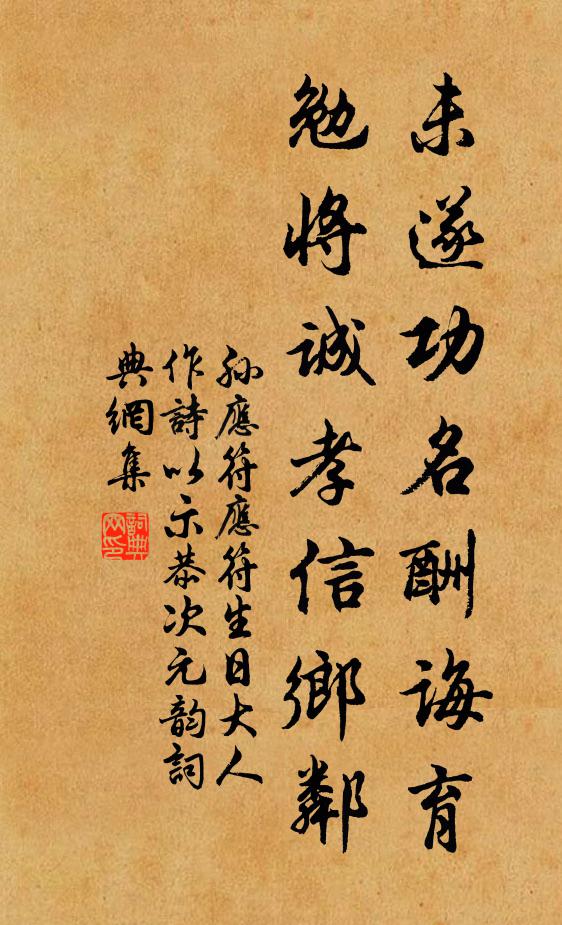 未遂功名酬誨育
勉將誠孝信鄉鄰
孫應符應符生日大人
作詩以示恭次元韵詞
典網集
詞典
网印